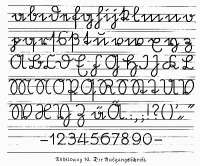 abcdefghijklmno
pqrſsßtuvwxyz
ABCDEFGHIJKL
MNOPQRSTUV
WXYZäÄ.:,;!?()'„"
-1234567890-
Abbildung 10. Die Ausgangsschrift.